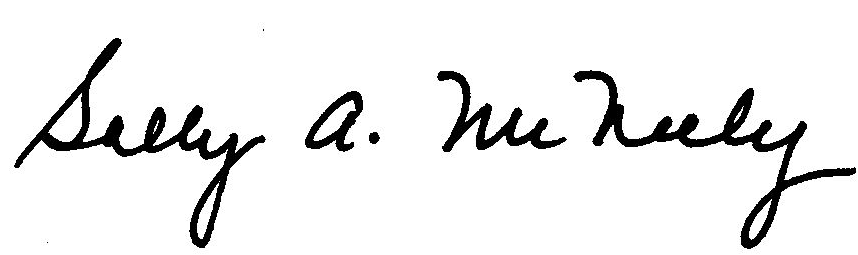 Sally A. McNeely